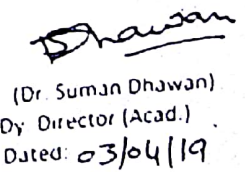 Dhawan
(Dr. Suman Dhawan)
Dy. Director (Acad.)
Dated: 03/04/19